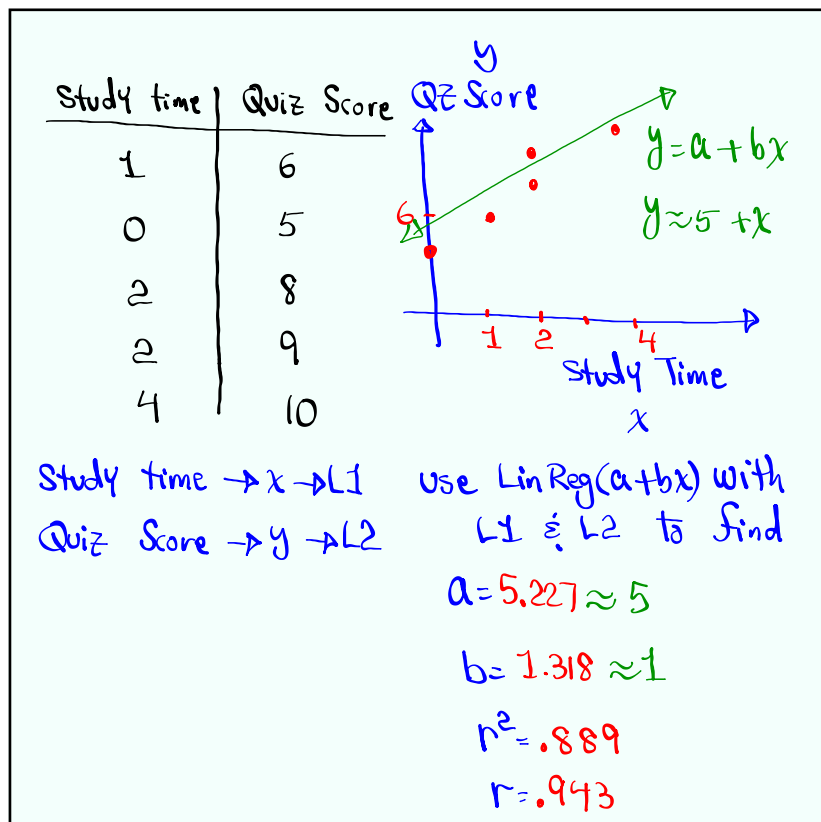 Study time | Quiz Score
1 | 6
0 | 5
2 | 8
2 | 9
4 | 10
y
QZ Score
y=a+bx
y≈5+x
6
1 2 4
Study Time
x
Study time → x → L1
Quiz Score → y → L2
use LinReg(a+bx) with
L1 & L2 to find
a=5.227≈5
b=1.318≈1
r²=.889
r=.943